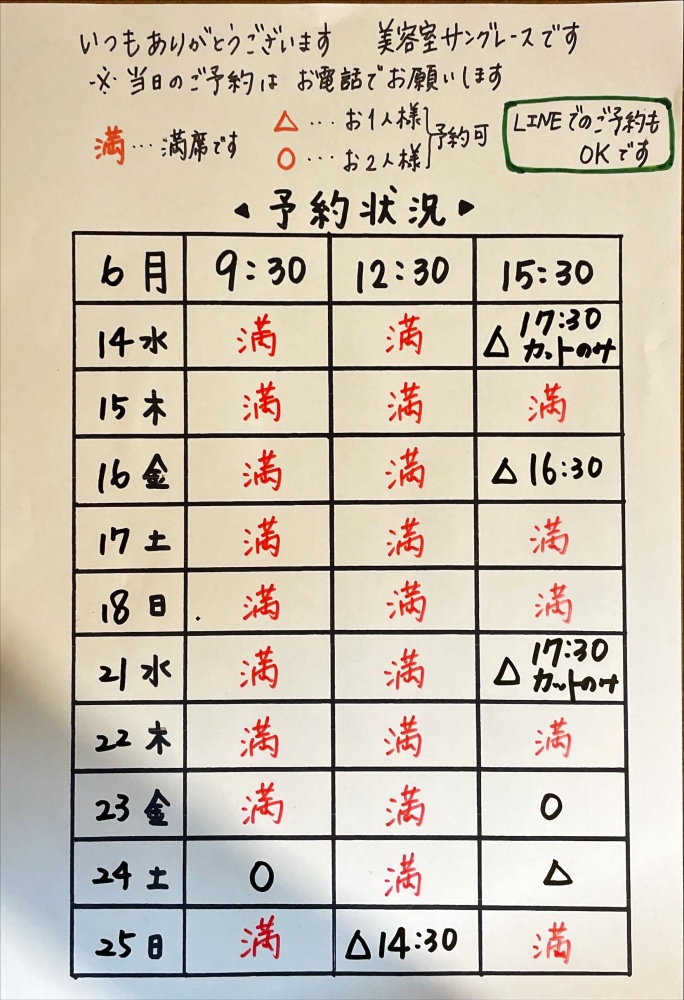 いつもありがとうございます 美容室サングレースです
※ 当日のご予約は お電話でお願いします
満…満席です
△…お1人様
○…お2人様
予約可
LINEでのご予約も
OKです
◀予約状況▶
6月 9:30 12:30 15:30
14水 満 満 △ 17:30 カットのみ
15木 満 満 満
16金 満 満 △16:30
17土 満 満 満
18日 満 満 満
21水 満 満 △ 17:30 カットのみ
22木 満 満 満
23金 満 満 ○
24土 ○ 満 △
25日 満 △14:30 満